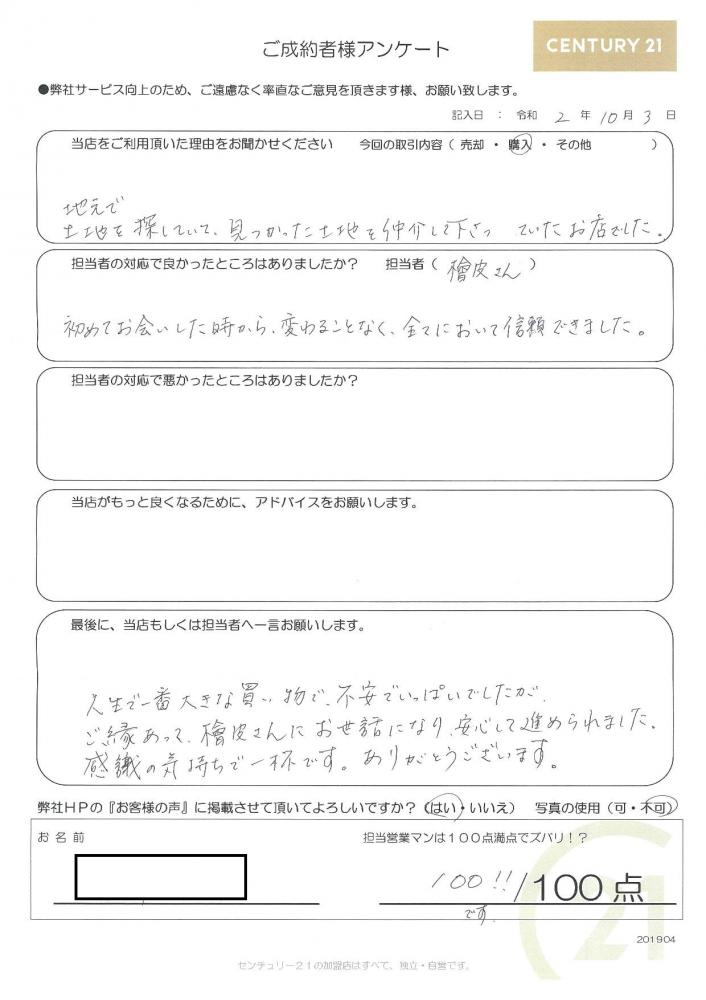 ご成約者様アンケート
CENTURY 21
●弊社サービス向上のため、ご遠慮なく率直なご意見を頂きます様、お願い致します。
記入日 : 令和 2 年 10 月 3 日
当店をご利用頂いた理由をお聞かせください 今回の取引内容( 売却 ・ 購入 ・ その他 )
地元で
土地を探していて、見つかった土地を仲介して下さっていたお店でした。
担当者の対応で良かったところはありましたか? 担当者( 檜皮さん )
初めてお会いした時から、変わることなく、全てにおいて信頼できました。
担当者の対応で悪かったところはありましたか?
当店がもっと良くなるために、アドバイスをお願いします。
最後に、当店もしくは担当者へ一言お願いします。
人生で一番大きな買い物で、不安でいっぱいでしたが、
ご縁あって、檜皮さんにお世話になり、安心して進められました。
感謝の気持ちで一杯です。ありがとうございます。
弊社HPの『お客様の声』に掲載させて頂いてよろしいですか?(はい・いいえ) 写真の使用(可・不可)
お名前
担当営業マンは100点満点でズバリ!?
100!!/100点
です
21
201904
センチュリー21の加盟店はすべて、独立・自営です。